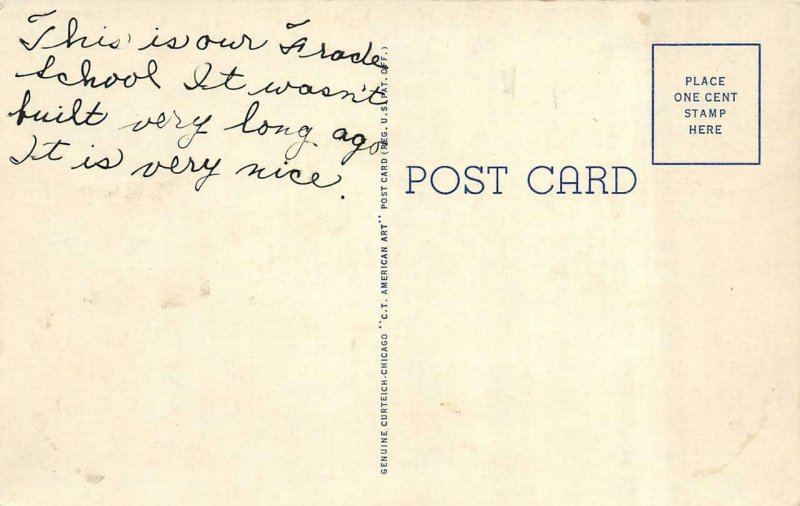 This is our Trade
School It wasn't
built very long ago
It is very nice.
GENUINE CURTEICH-CHICAGO "C.T. AMERICAN ART" POST CARD (REG. U.S. PAT. OFF.)
POST CARD
PLACE
ONE CENT
STAMP
HERE